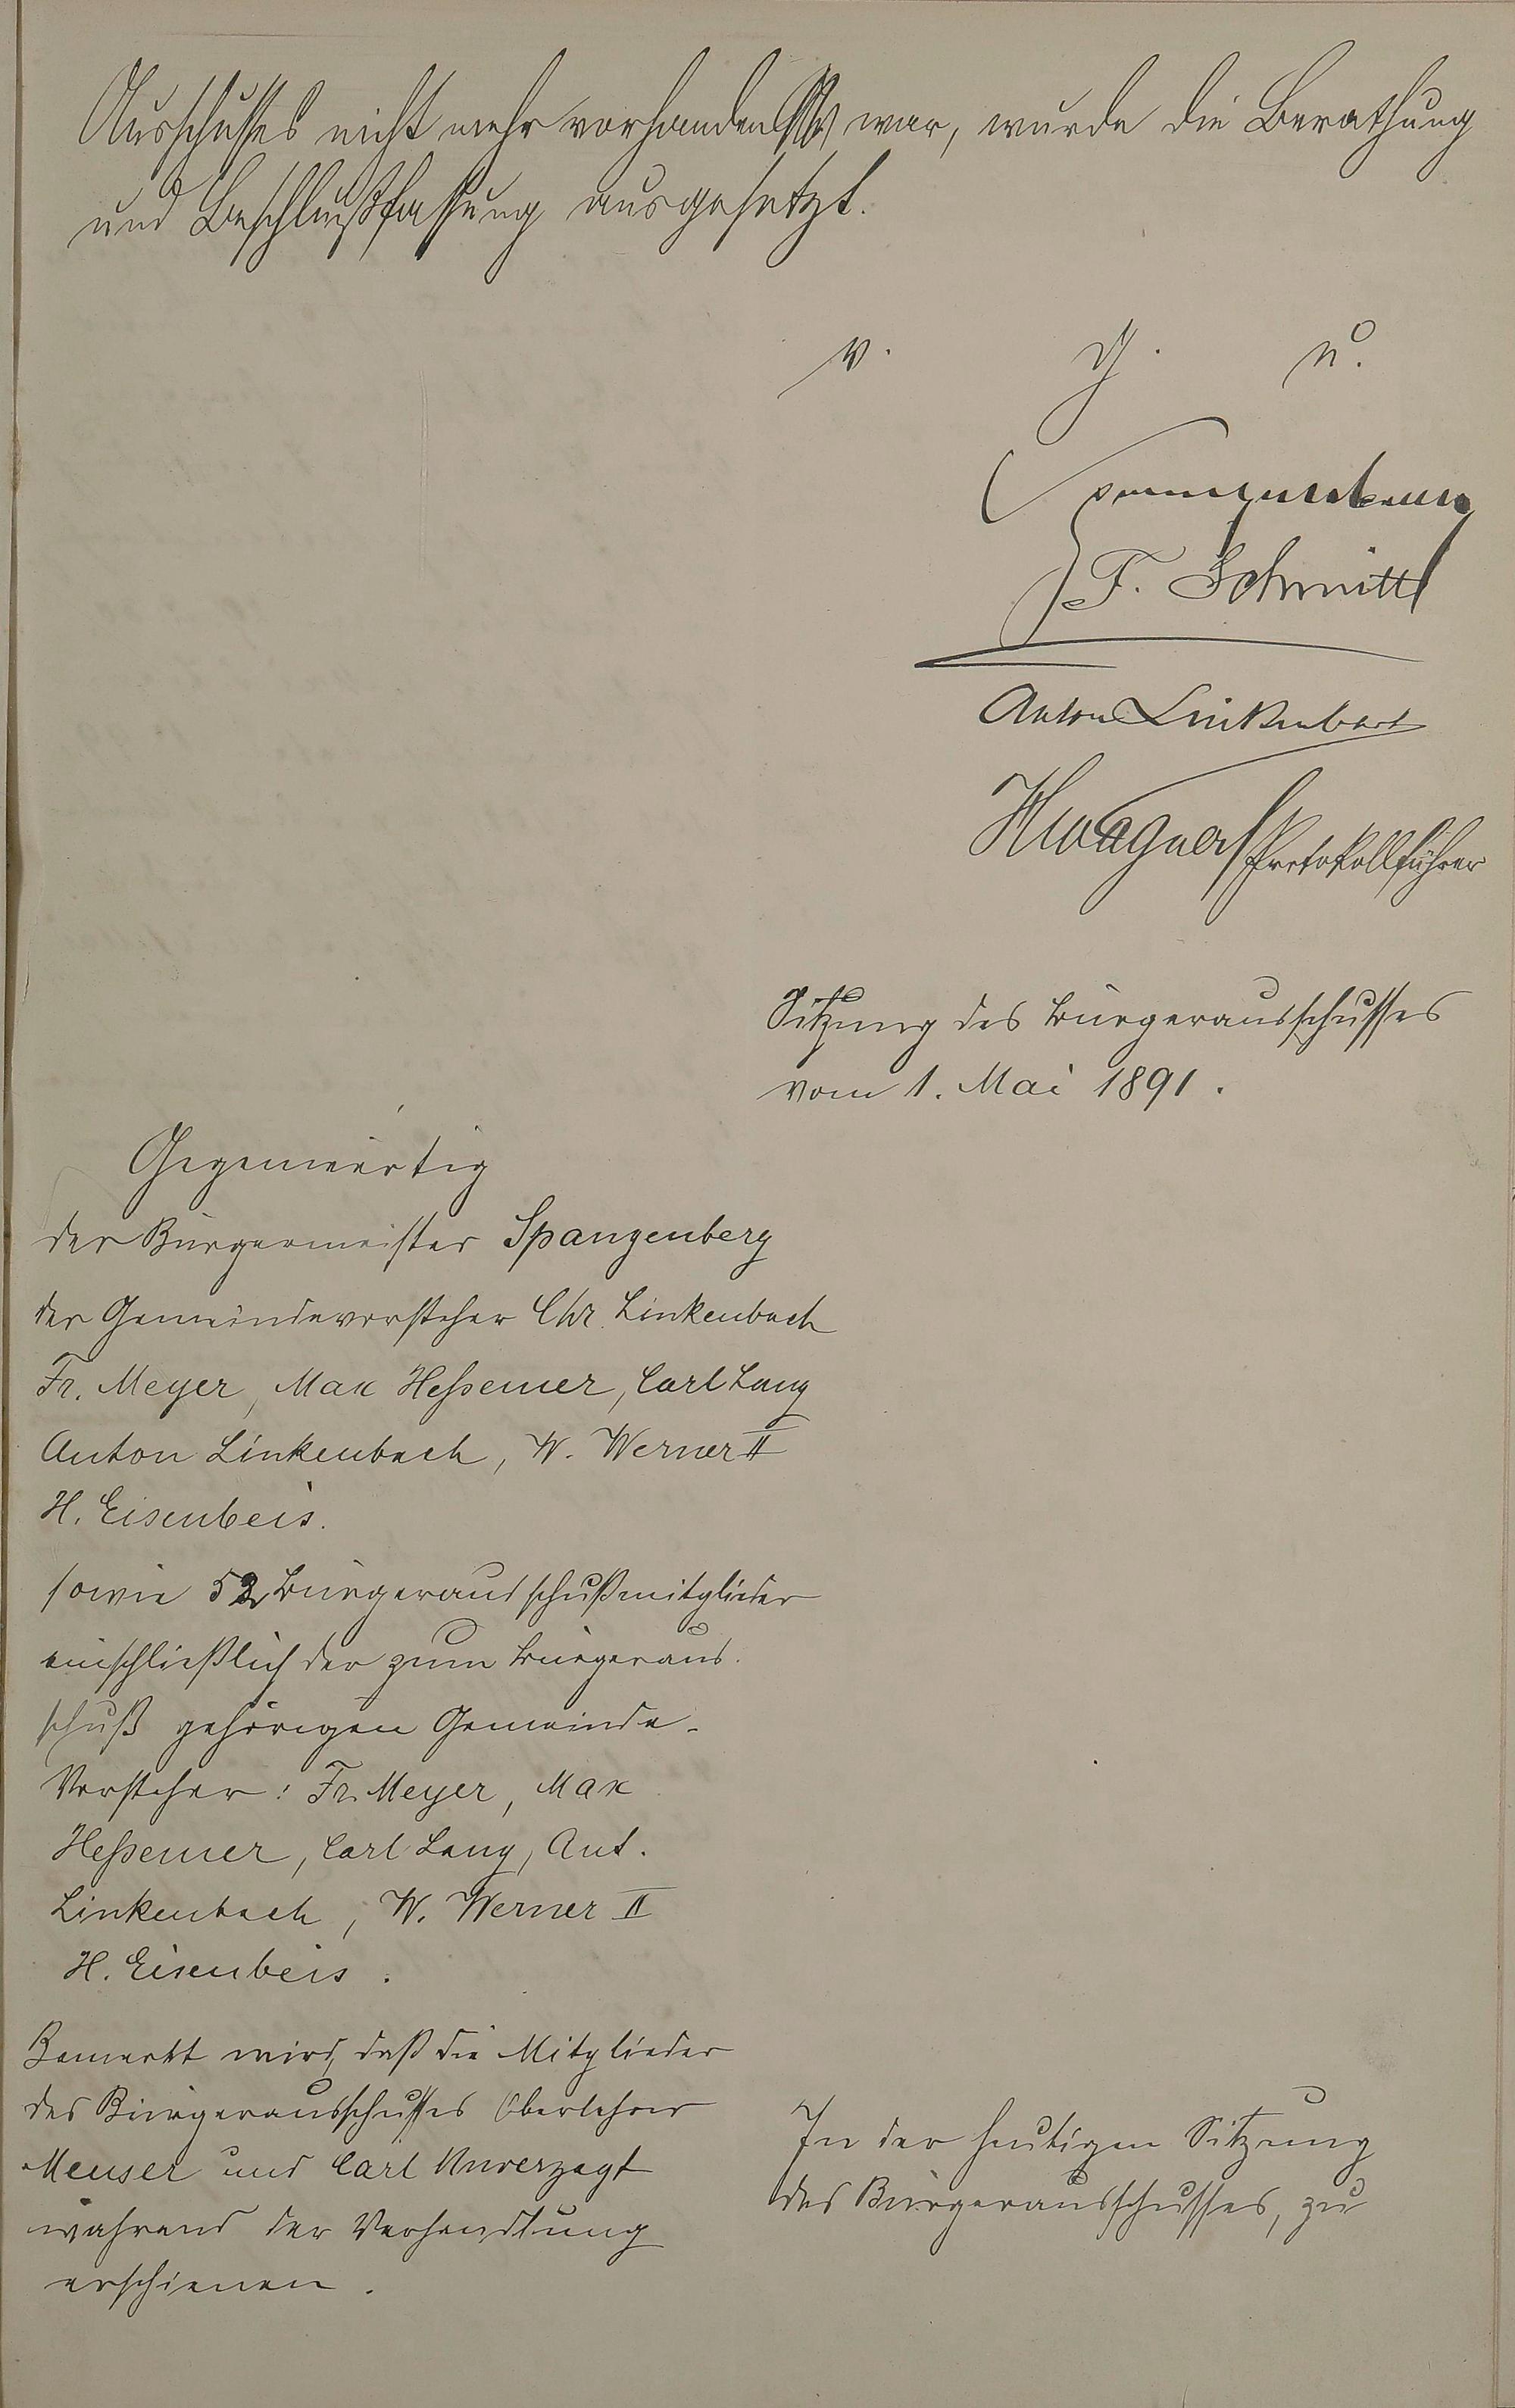 Ausschusses nicht mehr vorhanden war, wurde die Berathung
und Beschlußfassung ausgesetzt.
v. g. u.
Spangenberg
F. Schmitt
Anton Linkenbach
HWagner Protokollführer
Sitzung des Bürgerausschusses
vom 1. Mai 1891.
Gegenwärtig
der Bürgermeister Spangenberg
der Gemeindevorsteher Chr. Linkenbach
Fr. Meyer, Max Heßemer, Carl Lang
Anton Linkenbach, W. Werner II
H. Eisenbeis.
sowie 52 Bürgerausschußmitglieder
einschließlich der zum Bürgeraus-
schuß gehörigen Gemeinde-
Vorsteher: Fr. Meyer, Max
Heßemer, Carl Lang, Ant.
Linkenbach, W. Werner II
H. Eisenbeis.
Bemerkt wird, daß die Mitglieder
des Bürgerausschusses Oberlehrer
Meuser und Carl Unverzagt
während der Verhandlung
erschienen.
In der heutigen Sitzung
des Bürgerausschusses, zu